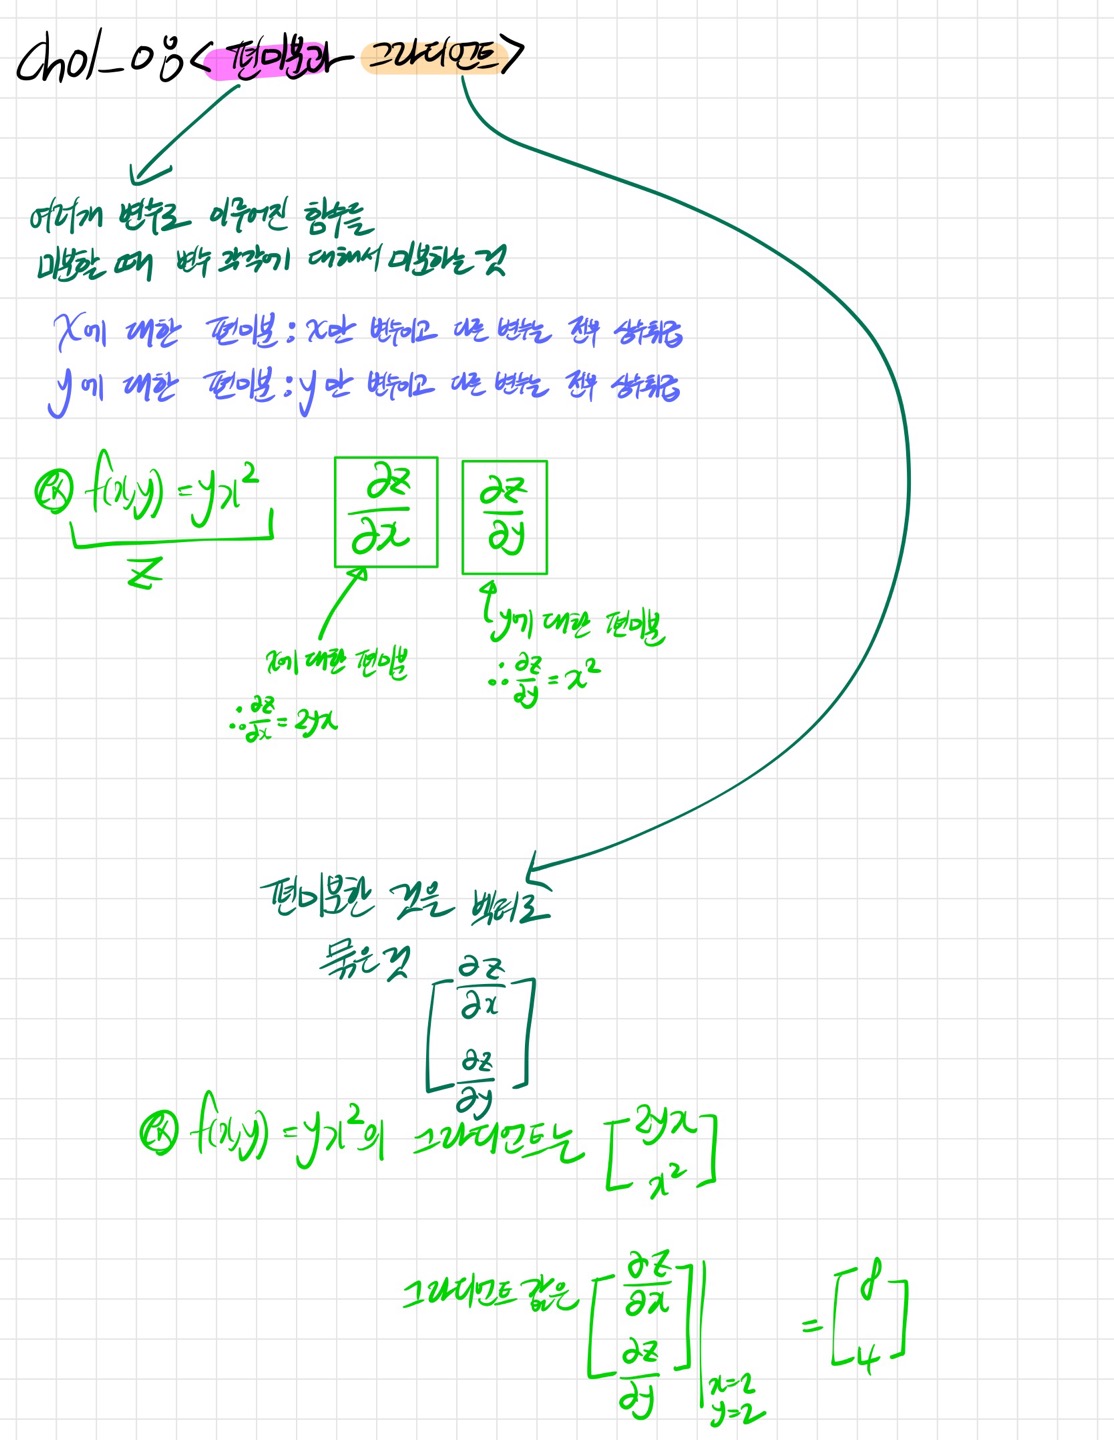 Ch01_08<편미분과 그라디언트>
여러개 변수로 이루어진 함수를
미분할 때 변수 각각에 대해서 미분하는 것
x에 대한 편미분 : x만 변수이고 다른 변수는 전부 상수취급
y에 대한 편미분 : y만 변수이고 다른 변수는 전부 상수취급
ex f(x,y) = yx² ∂z/∂x ∂z/∂y
z
y에 대한 편미분
x에 대한 편미분
∴ ∂z/∂y = x²
∴ ∂z/∂x = 2yx
편미분한 것을 벡터로
묶은것 [∂z/∂x ∂z/∂y]
ex f(x,y) = yx²의 그라디언트는 [2yx x²]
그라디언트 값은 [∂z/∂x ∂z/∂y] | x=2 y=2 = [8 4]